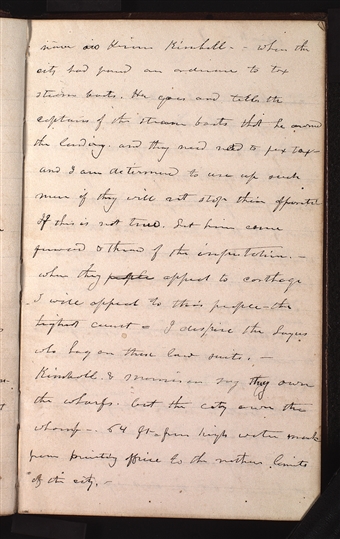 river as Hiram Kimball - - when the
city had passed an ordinance to tax
steam boats. He goes and tells the
captains of the steam boats that he owned
the landing. and they need not to pay tax -
and I am determined to use up such
men if they will not stop their opposition
If this is not true. Let him come
forward & throw off the imputation. -
when they people appeal to carthage
I will appeal to this people - the
highest court - I despise the Lawyers
who hag on their law suits. -
Kimball & Morrison say they own
the wharfs. but the city owns the
wharf - 64 ft. from high water mark
from printing office to the northern limits
of the city. -